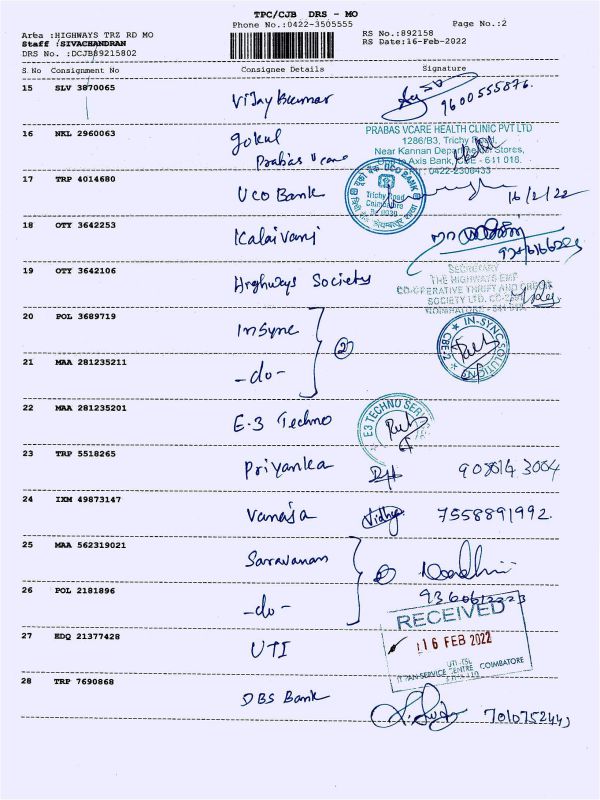 TPC/CJB DRS - MO
Phone No.:0422-3505555
Page No.:2
Area :HIGHWAYS TRZ RD MO
RS No.:892158
Staff :SIVACHANDRAN
RS Date:16-Feb-2022
DRS No. :DCJB89215802
S No Consignment No Consignee Details Signature
15 SLV 3870065 Vijay Kumar
9600555876.
16 NKL 2960063 Gokul
Prabas Vcare
PRABAS VCARE HEALTH CLINIC PVT LTD
1286/B3, Trichy Road,
Near Kannan Departmental Stores,
Axis Bank, CBE - 641 018.
0422-2306433
17 TRP 4014680 UCO Bank 16/2/22
UCO BANK
Trichy Road
Coimbatore
18 OTY 3642253 Kalaivani
19 OTY 3642106 Highways Society
SECRETARY
THE HIGHWAYS EMP.
CO-OPERATIVE THRIFT AND CREDIT
SOCIETY LTD.
20 POL 3689719 Insync
2
IN-SYNC SOLUTIONS
CBE-2
21 MAA 281235211 -do-
22 MAA 281235201 E-3 Techno
E3 TECHNO
23 TRP 5518265 Priyanka
24 IXM 49873147 Vanaja Vidhya 7558891992.
25 MAA 562319021 Saravanan
26 POL 2181896 -do-
27 EDQ 21377428 UTI
RECEIVED
16 FEB 2022
COIMBATORE
28 TRP 7690868 DBS Bank